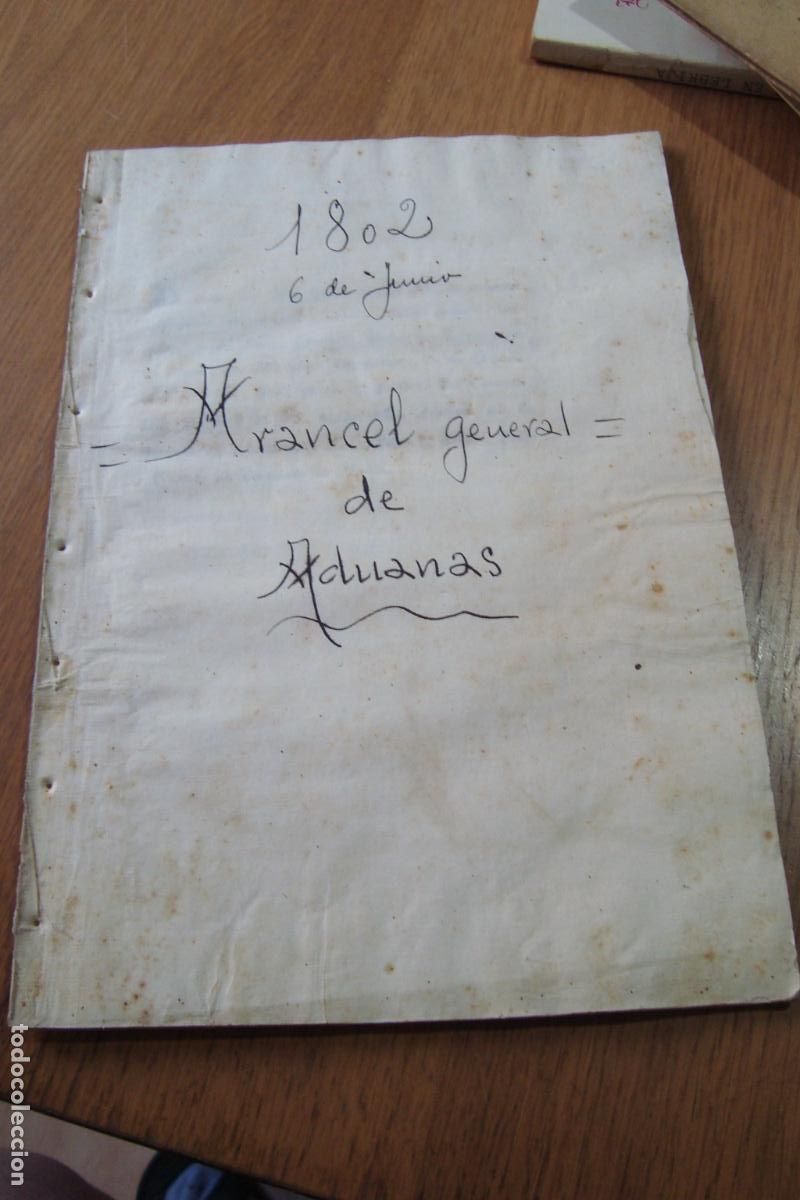 EN LEBRIJA
1802
6 de Junio
= Arancel general =
de
Aduanas
todocoleccion